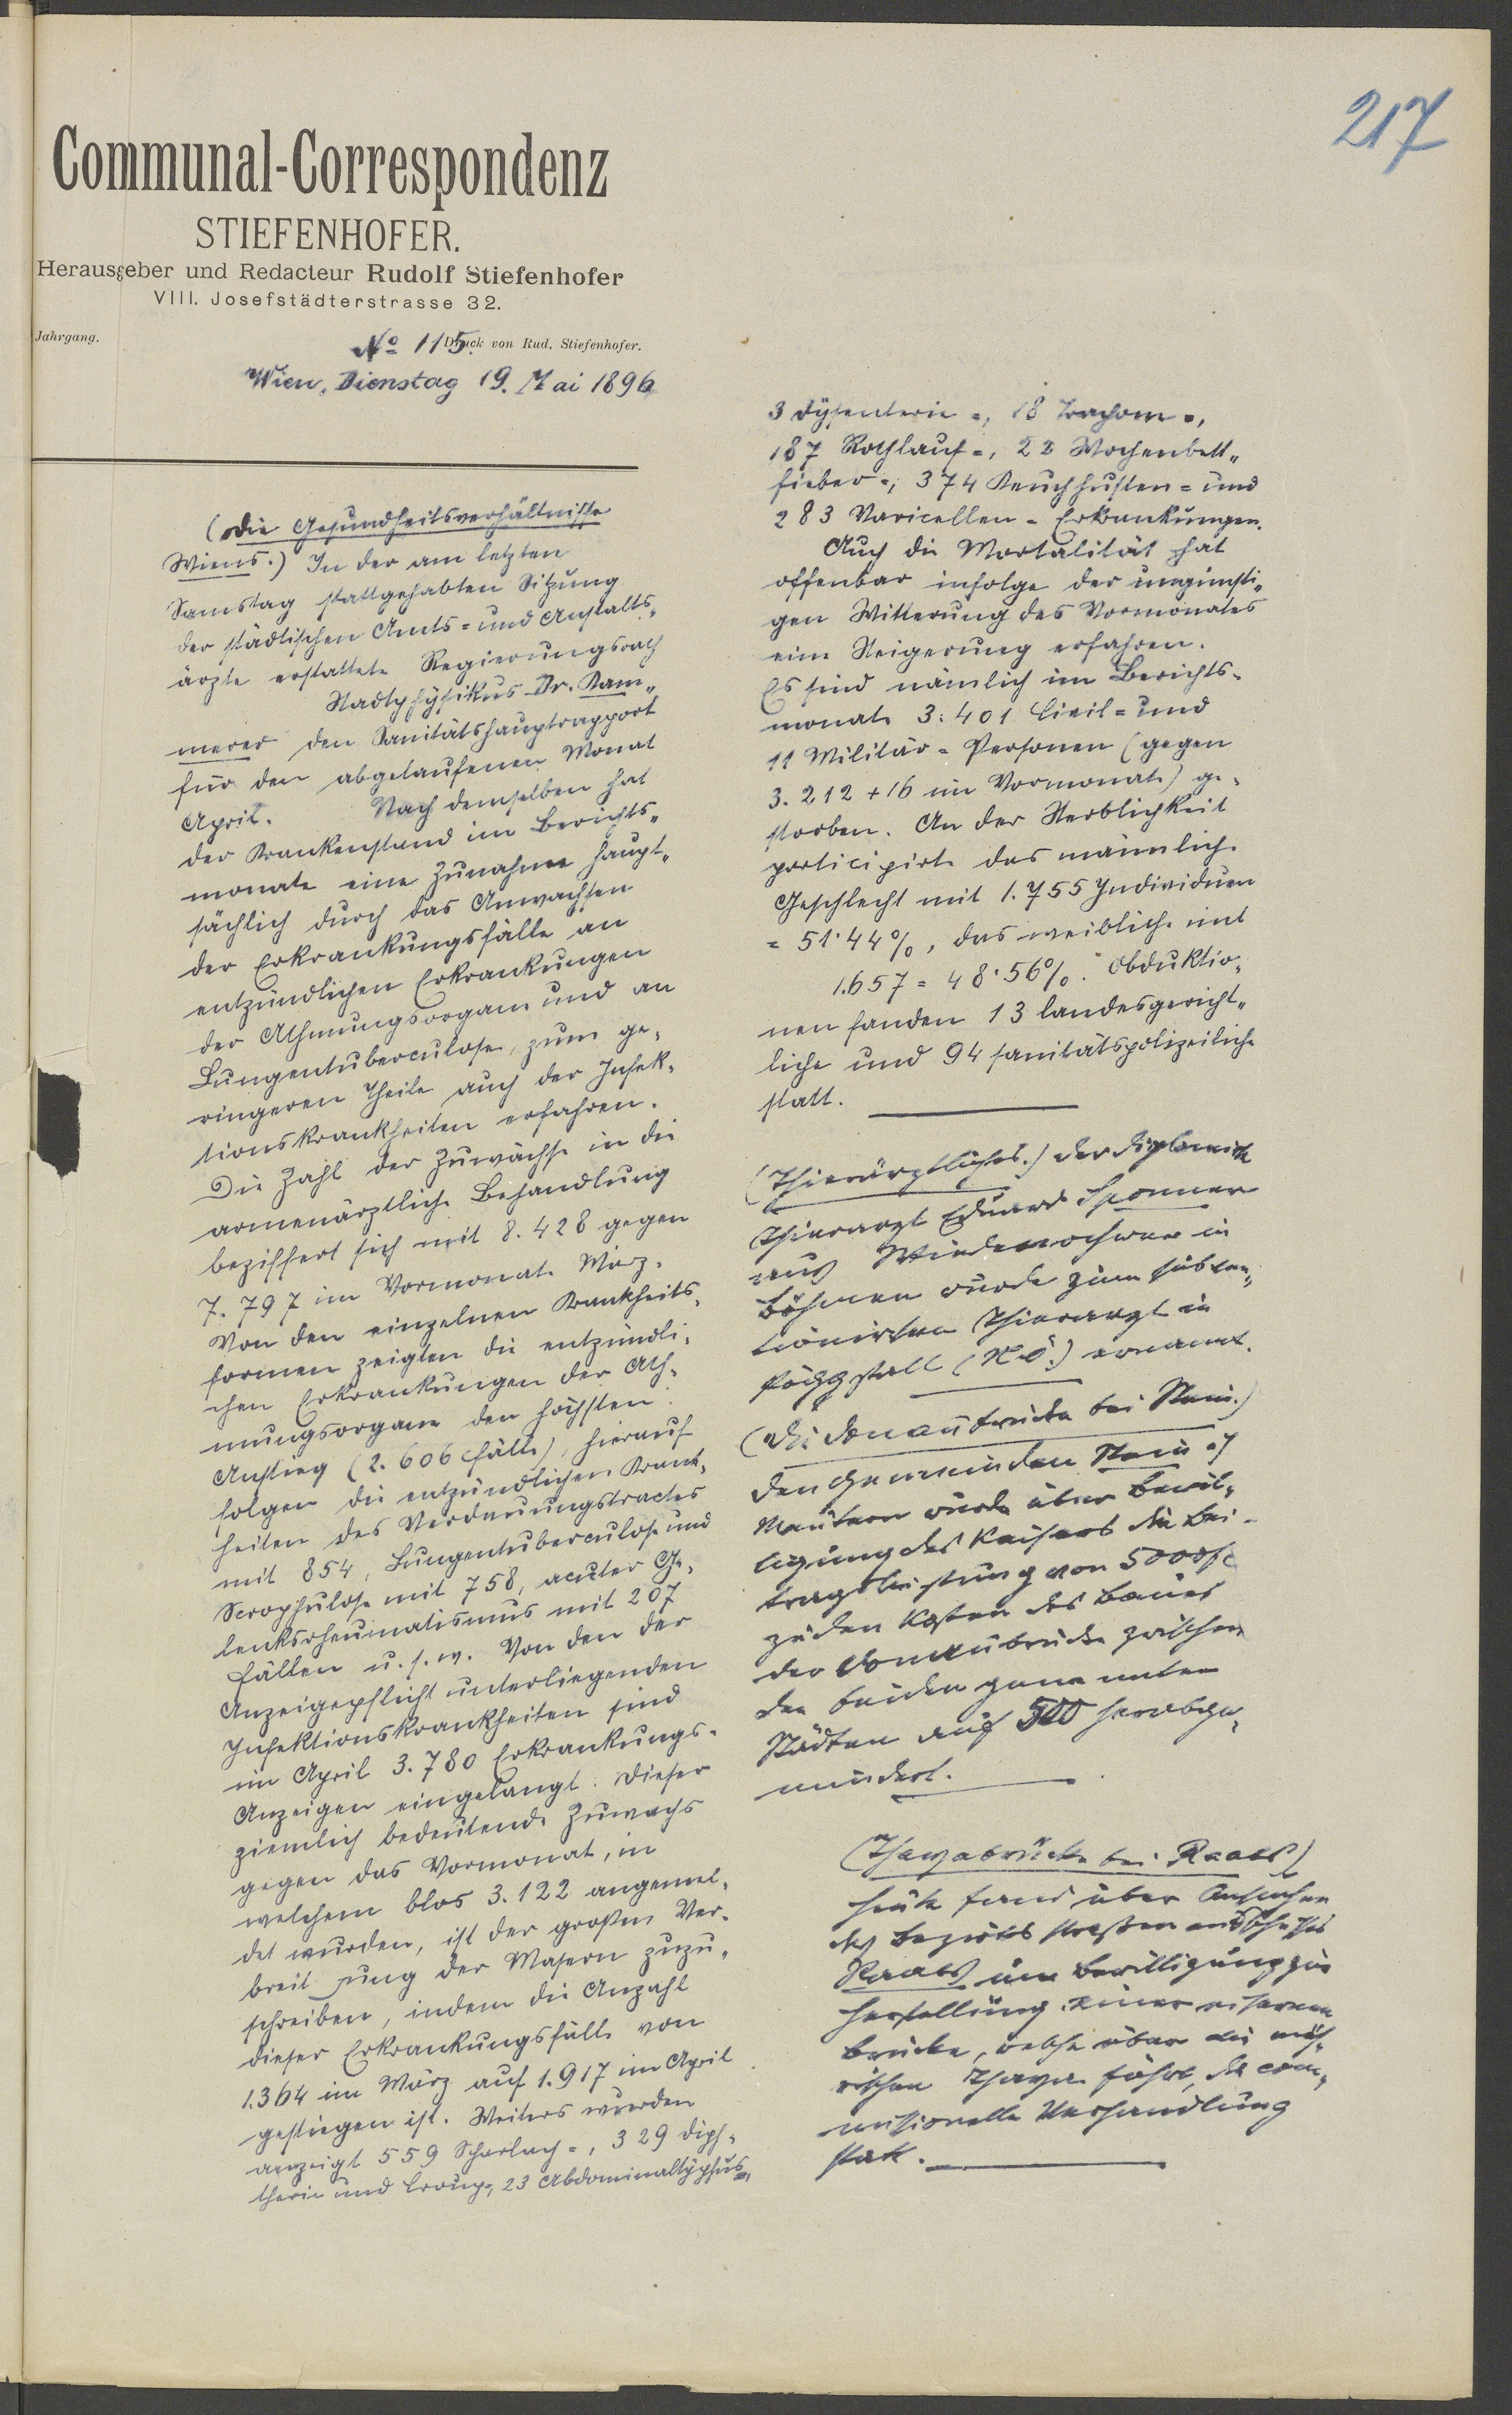 217
Communal-Correspondenz
STIEFENHOFER.
Herausgeber und Redacteur Rudolf Stiefenhofer
VIII. Josefstädterstrasse 32.
Jahrgang.
№ 115. Druck von Rud. Stiefenhofer.
Wien, Dienstag 19. Mai 1896
(Die Gesundheitsverhältnisse
Wiens.) In der am letzten
Samstag stattgehabten Sitzung
der städtischen Amts= und Anstalts„
ärzte erstattete Regierungsrath
Stadtphysikus Dr. Kam„
merer den Sanitätshauptrapport
für den abgelaufenen Monat
April. Nach demselben hat
der Krankenstand im Berichts„
monate eine Zunahme haupt„
sächlich durch das Anwachsen
der Erkrankungsfälle an
entzündlichen Erkrankungen
der Athmungsorgane und an
Lungentuberculose, zum ge„
ringeren Theile auch der Infek„
tionskrankheiten erfahren.
Die Zahl der Zuwächse in die
armenärztliche Behandlung
beziffert sich mit 8.428 gegen
7.797 im Vormonate März.
Von den einzelnen Krankheits„
formen zeigten die entzündli„
chen Erkrankungen der Ath„
mungsorgane den höchsten
Anstieg (2.606 Fälle), hierauf
folgen die entzündlichen Krank„
heiten des Verdauungstractes
mit 854, Lungentuberculose und
Scrophulose mit 758, acuter Ge„
lenksrheumatismus mit 207
Fällen u. s. w. Von den der
Anzeigepflicht unterliegenden
Infektionskrankheiten sind
im April 3.780 Erkrankungs-
Anzeigen eingelangt. Dieser
ziemlich bedeutende Zuwachs
gegen das Vormonat, in
welchem blos 3.122 angemel„
det wurden, ist der großen Ver„
breitung der Masern zuzu„
schreiben, indem die Anzahl
dieser Erkrankungsfälle von
1.364 im März auf 1.917 im April
gestiegen ist. Weiters wurden
angezeigt 559 Scharlach=, 329 Diph„
therie und Croup=, 23 Abdominaltyphus=,
3 Dysenterie=, 18 Trachom=,
187 Rothlauf=, 22 Wochenbett„
fieber=, 374 Keuchhusten= und
283 Varicellen=Erkrankungen.
Auch die Mortalität hat
offenbar infolge der ungünsti„
gen Witterung des Vormonates
eine Steigerung erfahren.
Es sind nämlich im Berichts-
monate 3.401 Civil= und
11 Militär=Personen (gegen
3.212 + 16 im Vormonate) ge„
storben. An der Sterblichkeit
participirte das männliche
Geschlecht mit 1.755 Individuen
= 51·44%, das weibliche mit
1.657 = 48·56%. Obduktio„
nen fanden 13 landesgericht„
liche und 94 sanitätspolizeiliche
statt.
(Thierärztliches.) Der diplomirte
Thierarzt Eduard Sponner
aus in
Böhmen wurde zum subven„
tionirten Thierarzt in
Pöggstall (N.Ö.) ernannt.
(Die Donaubrücke bei Stein.)
Den Gemeinden Stein u.
Mautern wurde über Bewil„
ligung des Kaisers die Bei-
tragsleistung von 5000 fl
zu den Kosten des Baues
der Donaubrücke zwischen
den beiden genannten
Städten auf 500 herabge„
mindert.
(Thayabrücke bei Raabs)
Heute fand über Ansuchen
des Bezirksstraßenausschusses
Raabs um Bewilligung zur
Herstellung einer eisernen
Brücke, welche über die mäh„
rischen Thaya führt, die com„
missionelle Verhandlung
statt.